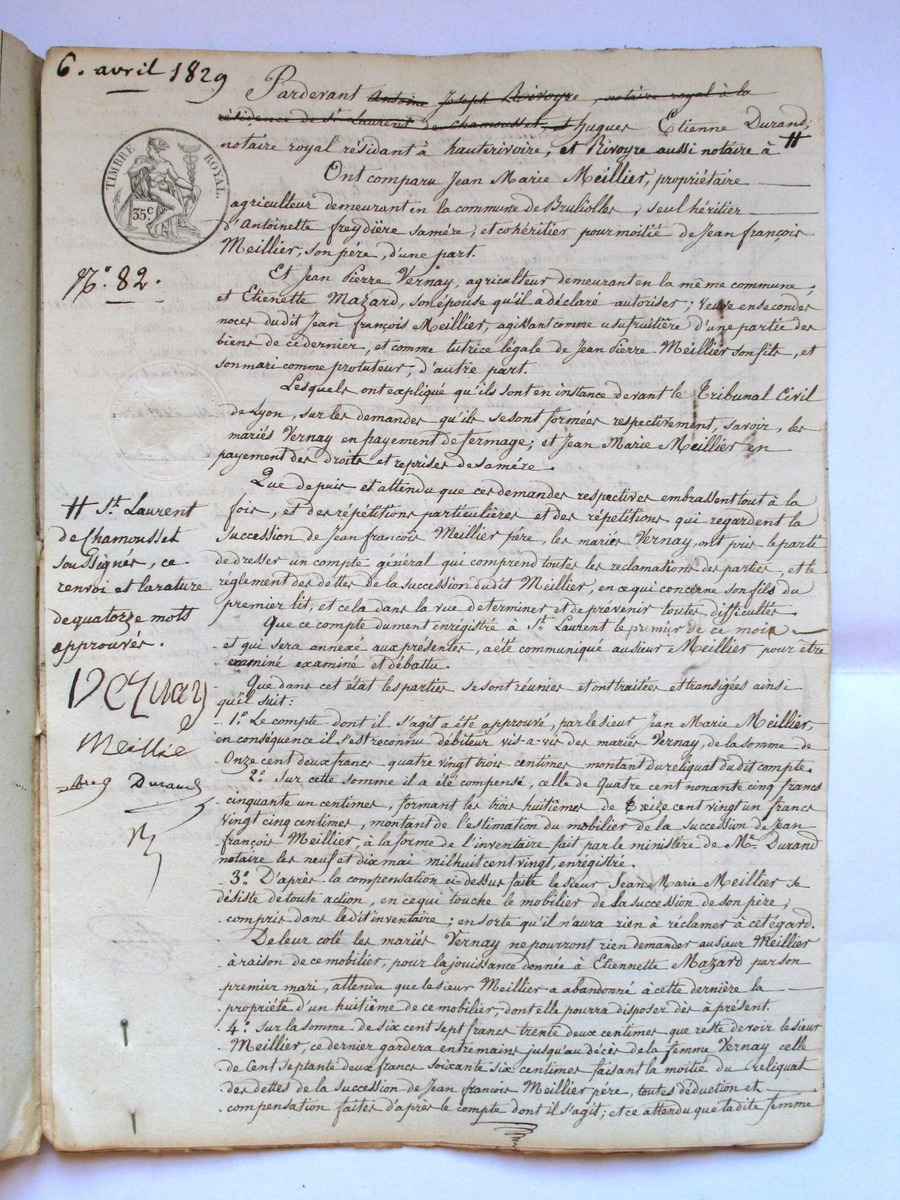 6. avril 1829
Pardevant Antoine Joseph Rivoyre, notaire royal à la
résidence de St. Laurent de Chamousset, et hugues Etienne Durand,
notaire royal résidant à hauterivoire, et Rivoyre aussi notaire à #
TIMBRE ROYAL.
35 c
Ont comparu Jean Marie Meillier, propriétaire
agriculteur demeurant en la commune de Brulliolles, seul héritier
d'Antoinette freydière sa mére, et cohéritier pour moitié de Jean françois
Meillier, son pére, d'une part.
N.º 82.
Et Jean Pierre Vernay, agriculteur demeurant en la même commune;
et Etienette Mazard, son épouse qu'il a déclaré autoriser; veuve en secondes
noces dudit Jean françois Meillier, agissant comme usufruitière d'une partie des
biens de ce dernier, et comme tutrice légale de Jean Pierre Meillier son fils, et
son mari comme protuteur, d'autre part.
Lesquels ont expliqué qu'ils sont en instance devant le Tribunal Civil
de Lyon, sur les demandes qu'ils se sont formées respectivement, savoir, les
mariés Vernay en payement de fermage; et Jean Marie Meillier en
payement des droits et reprises de sa mére.
Que depuis et attendu que ces demandes respectives embrassent tout à la
fois, et des répétitions particulières et des répétitions qui regardent la
succession de Jean francois Meillier pére, les mariés Vernay, ont pris le parti
de dresser un compte général qui comprend toutes les reclamations des parties, et le
réglement des dettes de la succession dudit Meillier, en ce qui concerne son fils du
premier lit, et cela dans la vue de terminer et de prévenir toutes difficultés
# St. Laurent
de Chamousset
soussignés, ce
renvoi et la rature
de quatorze mots
approuvés.
Que ce compte dument enregistré à St. Laurent le premier de ce mois
et qui sera annexé aux présentes, a été communiqué au sieur Meillier pour être
examiné examiné et débattu.
Que dans cet état les parties se sont réunies et ont traitées et transigées ainsi
qu'il suit:
Vernay
Meillié
Durand
1º. Le compte dont il s'agit a été approuvé, par le sieur Jean Marie Meillier,
en conséquence il s'est reconnu débiteur vis-à-vis des mariés Vernay, de la somme de
Onze cent deux francs quatre vingt trois centimes montant du reliquat dudit compte.
2º. Sur cette somme il a été compensé, celle de quatre cent nonante cinq francs
cinquante un centimes, formant les trois huitièmes de Treize cent vingt un francs
vingt cinq centimes, montant de l'estimation du mobilier de la succession de Jean
françois Meillier, à la forme de l'inventaire fait par le ministère de Me. Durand
notaire les neuf et dix mai mil huit cent vingt, enrégistré.
3º. D'après la compensation ci-dessus faite le sieur Jean Marie Meillier se
désiste de toute action, en ce qui touche le mobilier de la succession de son père,
compris dans ledit inventaire; en sorte qu'il n'aura rien à réclamer à cet égard.
De leur coté les mariés Vernay ne pourront rien demander au sieur Meillier
à raison de ce mobilier, pour la jouissance donnée à Etiennette Mazard par son
premier mari, attendu que le sieur Meillier a abandonné à cette dernière la
propriété d'un huitième de ce mobilier, dont elle pourra disposer dès à présent.
4º. Sur la somme de six cent sept francs trente deux centimes que reste devoir le sieur
Meillier, ce dernier gardera entre mains jusqu'au décès de la femme Vernay celle
de Cent septante deux francs soixante six centimes faisant la moitié du reliquat
des dettes de la succession de Jean françois Meillier pére, toutes déduction et
compensation faites d'après le compte dont il s'agit; et ce attendu que la dite femme